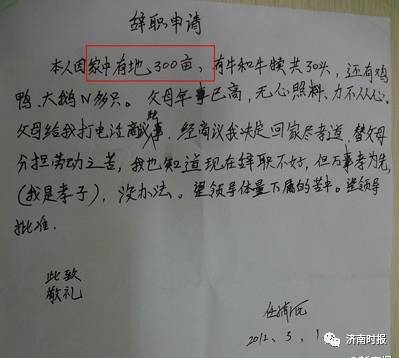 辞职申请
本人因家中有地300亩、有牛和牛犊共30头，还有鸡
鸭、大鹅N多只。父母年事已高，无心照料、力不从心。
父母给我打电话商议此事，经商议我决定回家尽孝道、替父母
分担劳动之苦，我也知道现在辞职不好，但万事孝为先
(我是孝子)，没办法。望领导体量下属的苦中。望领导
批准.
此致
敬礼
2012.3.1
济南时报